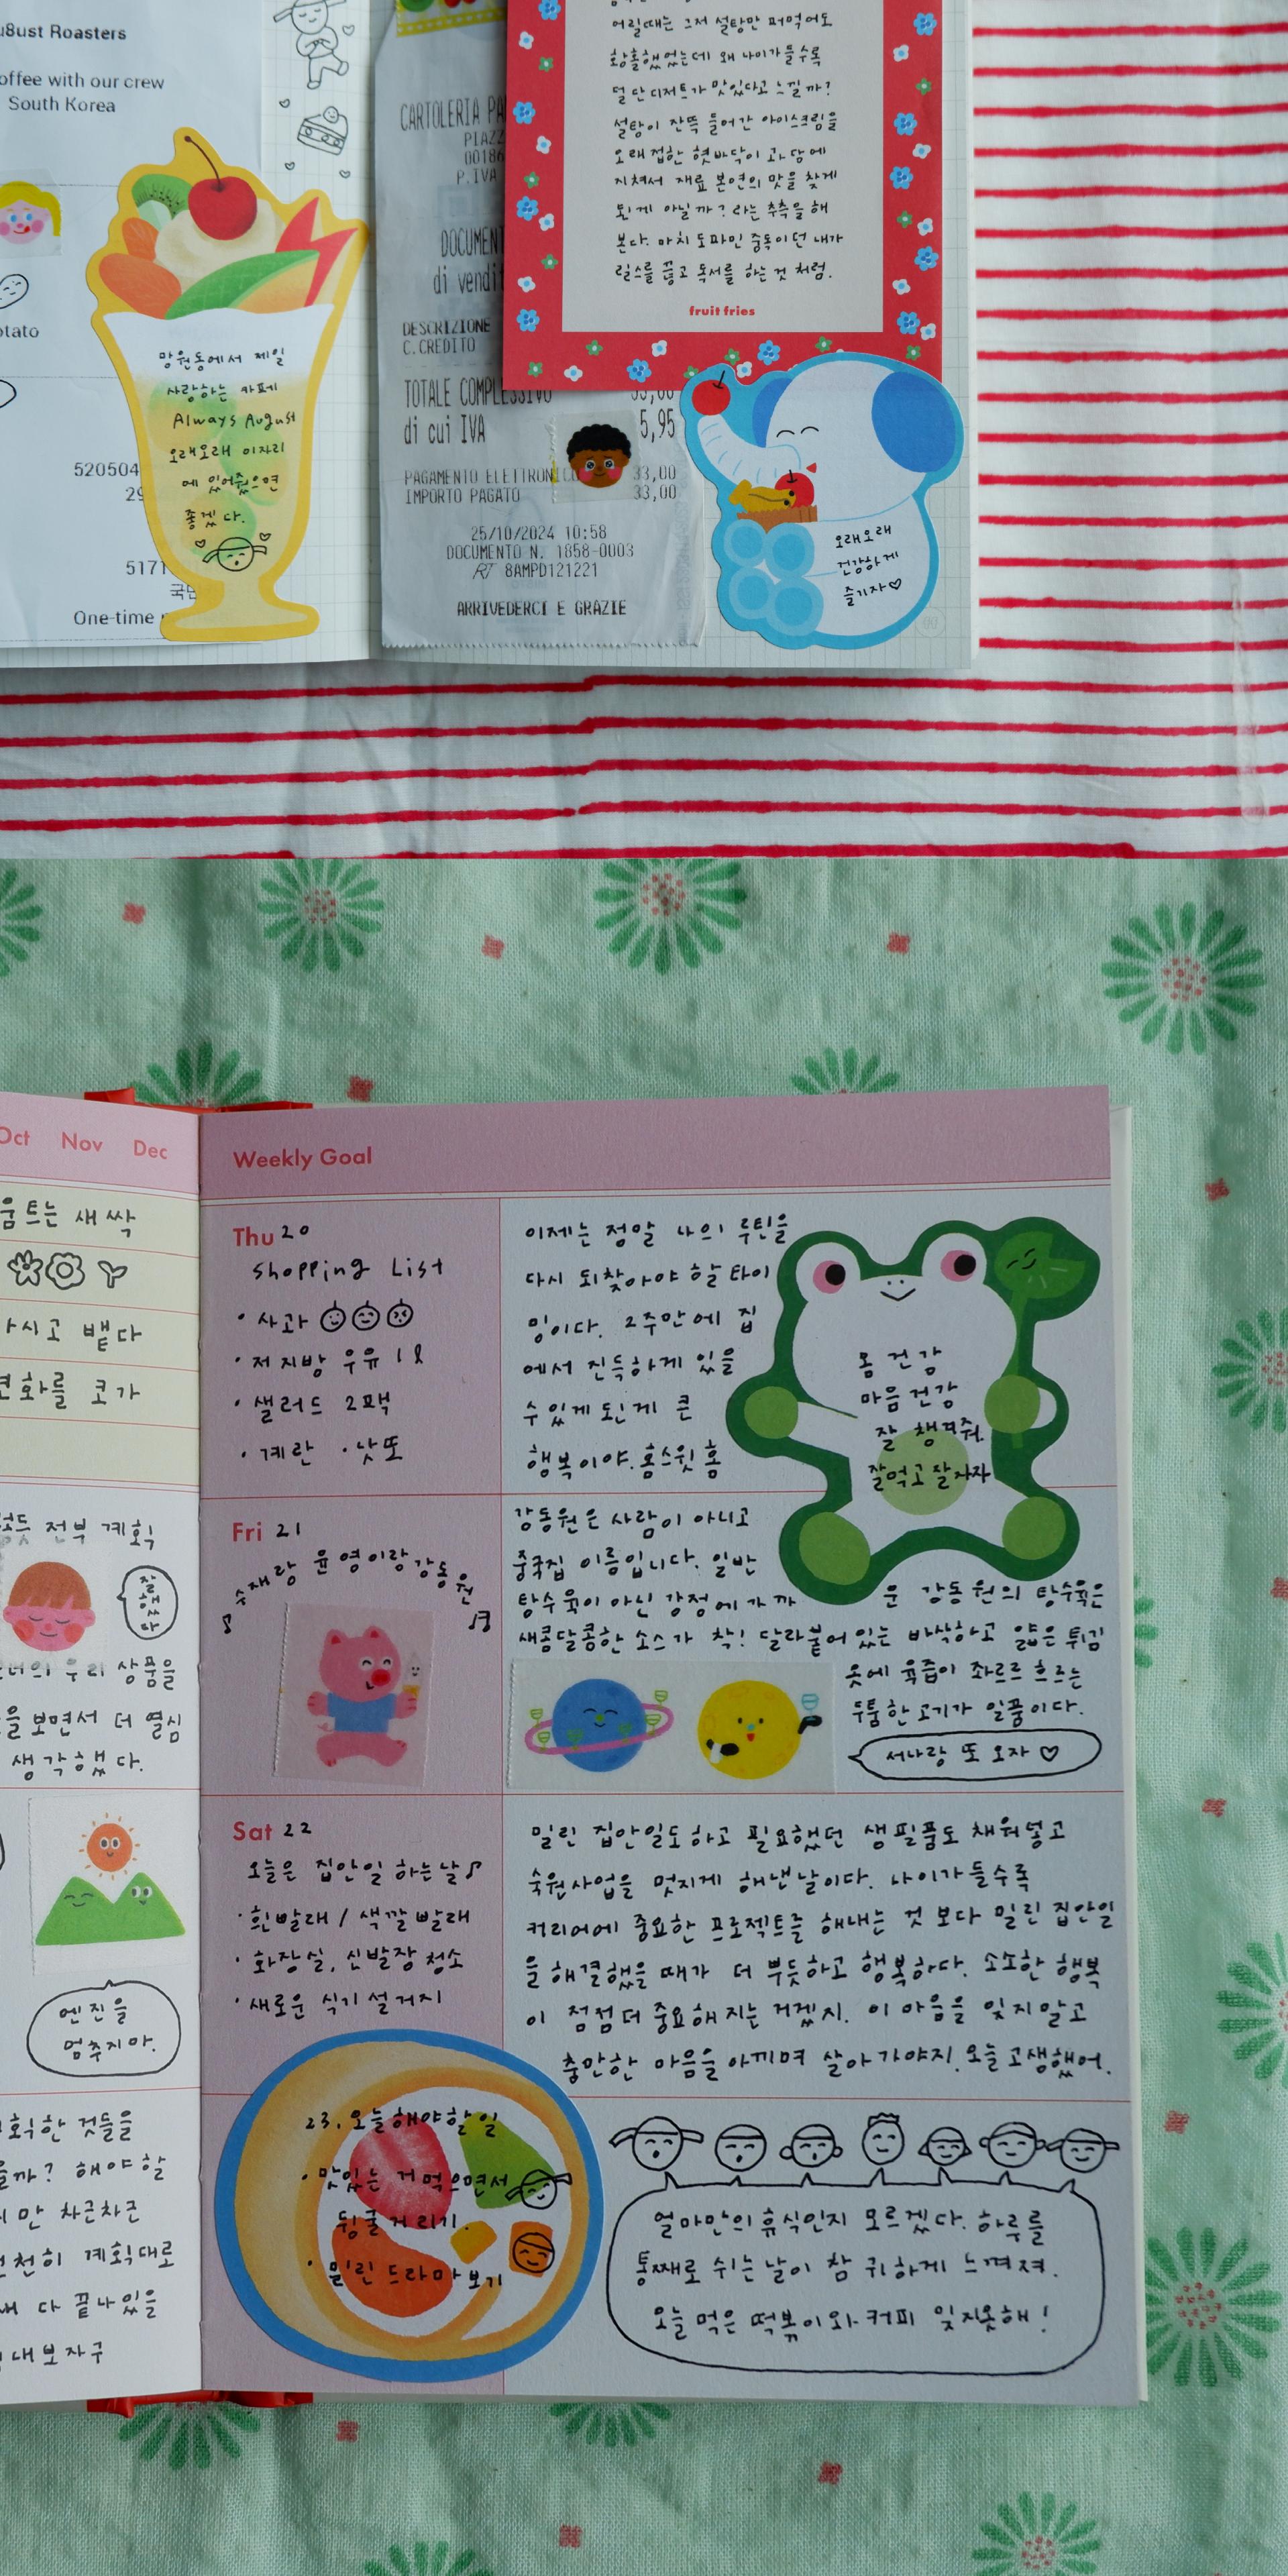 u8ust Roasters
offee with our crew
South Korea
otato
520504
29
5171
국민
One-time
망원동에서 제일
사랑하는 카페
Always August
오래오래 이자리
에 있어줬으면
좋겠다.
CARTOLERIA PA
PIAZ
00186
P.IVA
DOCUMEN
di vendit
DESCRIZIONE
C.CREDITO
TOTALE COMPLESSIVO 33,00
di cui IVA 5,95
PAGAMENTO ELETTRONICO 33,00
IMPORTO PAGATO 33,00
25/10/2024 10:58
DOCUMENTO N. 1858-0003
RT 8AMPD121221
ARRIVEDERCI E GRAZIE
어릴때는 그저 설탕만 퍼먹어도
황홀했었는데 왜 나이가들수록
덜 단 디저트가 맛있다고 느낄까?
설탕이 잔뜩 들어간 아이스크림을
오래 접한 혓바닥이 과당에
지쳐서 재료 본연의 맛을 찾게
된게 아닐까? 라는 추측을 해
본다. 마치 도파민 중독이던 내가
릴스를 끊고 독서를 하는 것 처럼.
fruit fries
오래오래
건강하게
즐기자♡
Oct Nov Dec
움트는 새싹
마시고 뱉다
변화를 코가
전부 계획
잘했다
우리 상품을
을 보면서 더 열심
생각했다.
엔진을
멈추지마.
계획한 것들을
을까? 해야할
지만 차근차근
천천히 계획대로
새 다 끝나있을
내보자구
Weekly Goal
Thu 20
Shopping List
· 사과
· 저지방 우유 1ℓ
· 샐러드 2팩
· 계란 · 낫또
이제는 정말 나의 루틴을
다시 되찾아야 할 타이
밍이다. 2주만에 집
에서 진득하게 있을
수 있게 된게 큰
행복이야. 홈스윗홈
몸 건강
마음 건강
잘 챙겨줘.
잘먹고 잘자자
Fri 21
수재랑 윤영이랑 강동원
강동원은 사람이 아니고
중국집 이름입니다. 일반
탕수육이 아닌 강정에 가까
운 강동원의 탕수육은
새콤달콤한 소스가 착! 달라붙어 있는 바삭하고 얇은 튀김
옷에 육즙이 좌르르 흐르는
두툼한 고기가 일품이다.
서나랑 또 오자 ♡
Sat 22
오늘은 집안일 하는날♪
· 흰빨래 / 색깔빨래
· 화장실, 신발장 청소
· 새로운 식기 설거지
밀린 집안일도 하고 필요했던 생필품도 채워넣고
숙원사업을 멋지게 해낸날이다. 나이가 들수록
커리어에 중요한 프로젝트를 해내는 것 보다 밀린 집안일
을 해결했을 때가 더 뿌듯하고 행복하다. 소소한 행복
이 점점 더 중요해지는 거겠지. 이 마음을 잊지말고
충만한 마음을 아끼며 살아가야지. 오늘 고생했어.
23. 오늘해야할일
· 맛있는 거 먹으면서
뒹굴거리기.
· 밀린 드라마 보기
얼마만의 휴식인지 모르겠다. 하루를
통째로 쉬는 날이 참 귀하게 느껴져.
오늘 먹은 떡볶이와 커피 잊지못해!